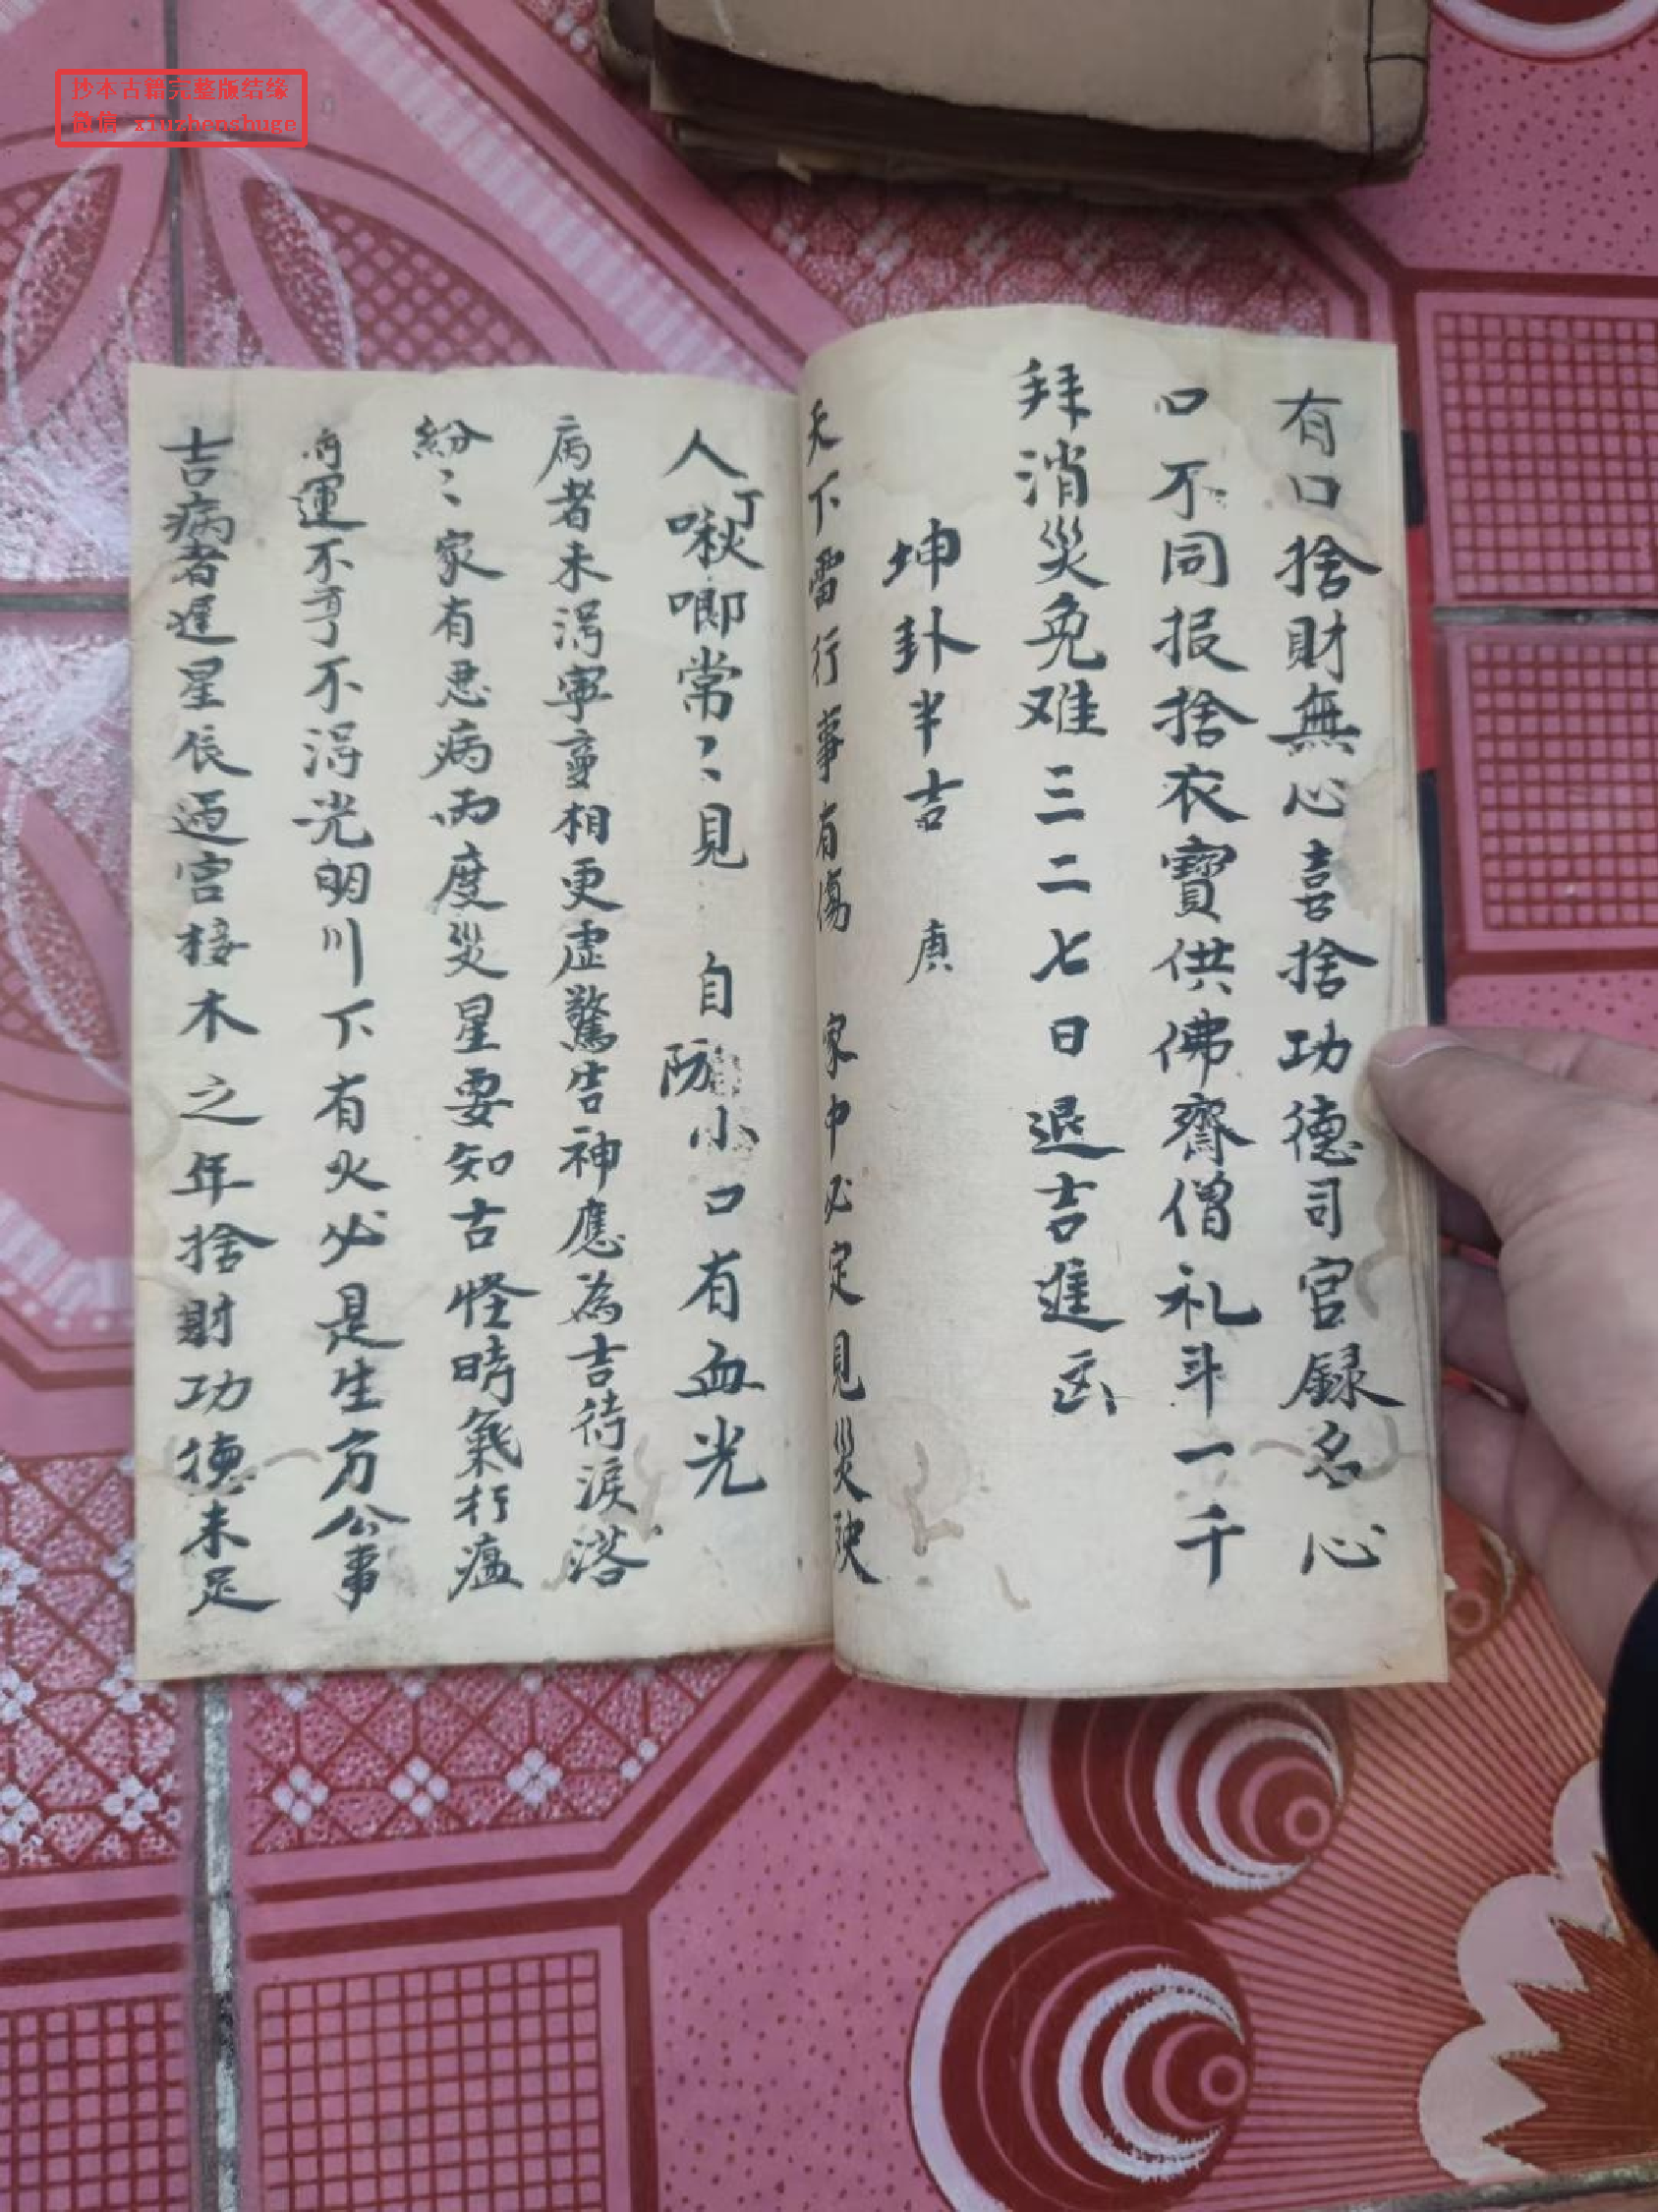 抄本古籍完整版结缘
微信 xiuzhenshuge
有口捨財無心喜捨功德司官録名心
口不同报捨衣寶供佛齋僧礼斗一千
拜消災免难三二七日退吉進凶
坤卦半吉 庚
天下雷行事有傷 家中必定見災殃
人丁啾唧常〻見 自防小口有血光
病者未淂寧事相更虚驚告神應為吉待淚落
紛〻家有思病两度災星要知古怪時氣行瘟
運不亨不淂光明川下有火必是生方公事
吉病者遅星辰過宮接木之年捨財功德未足